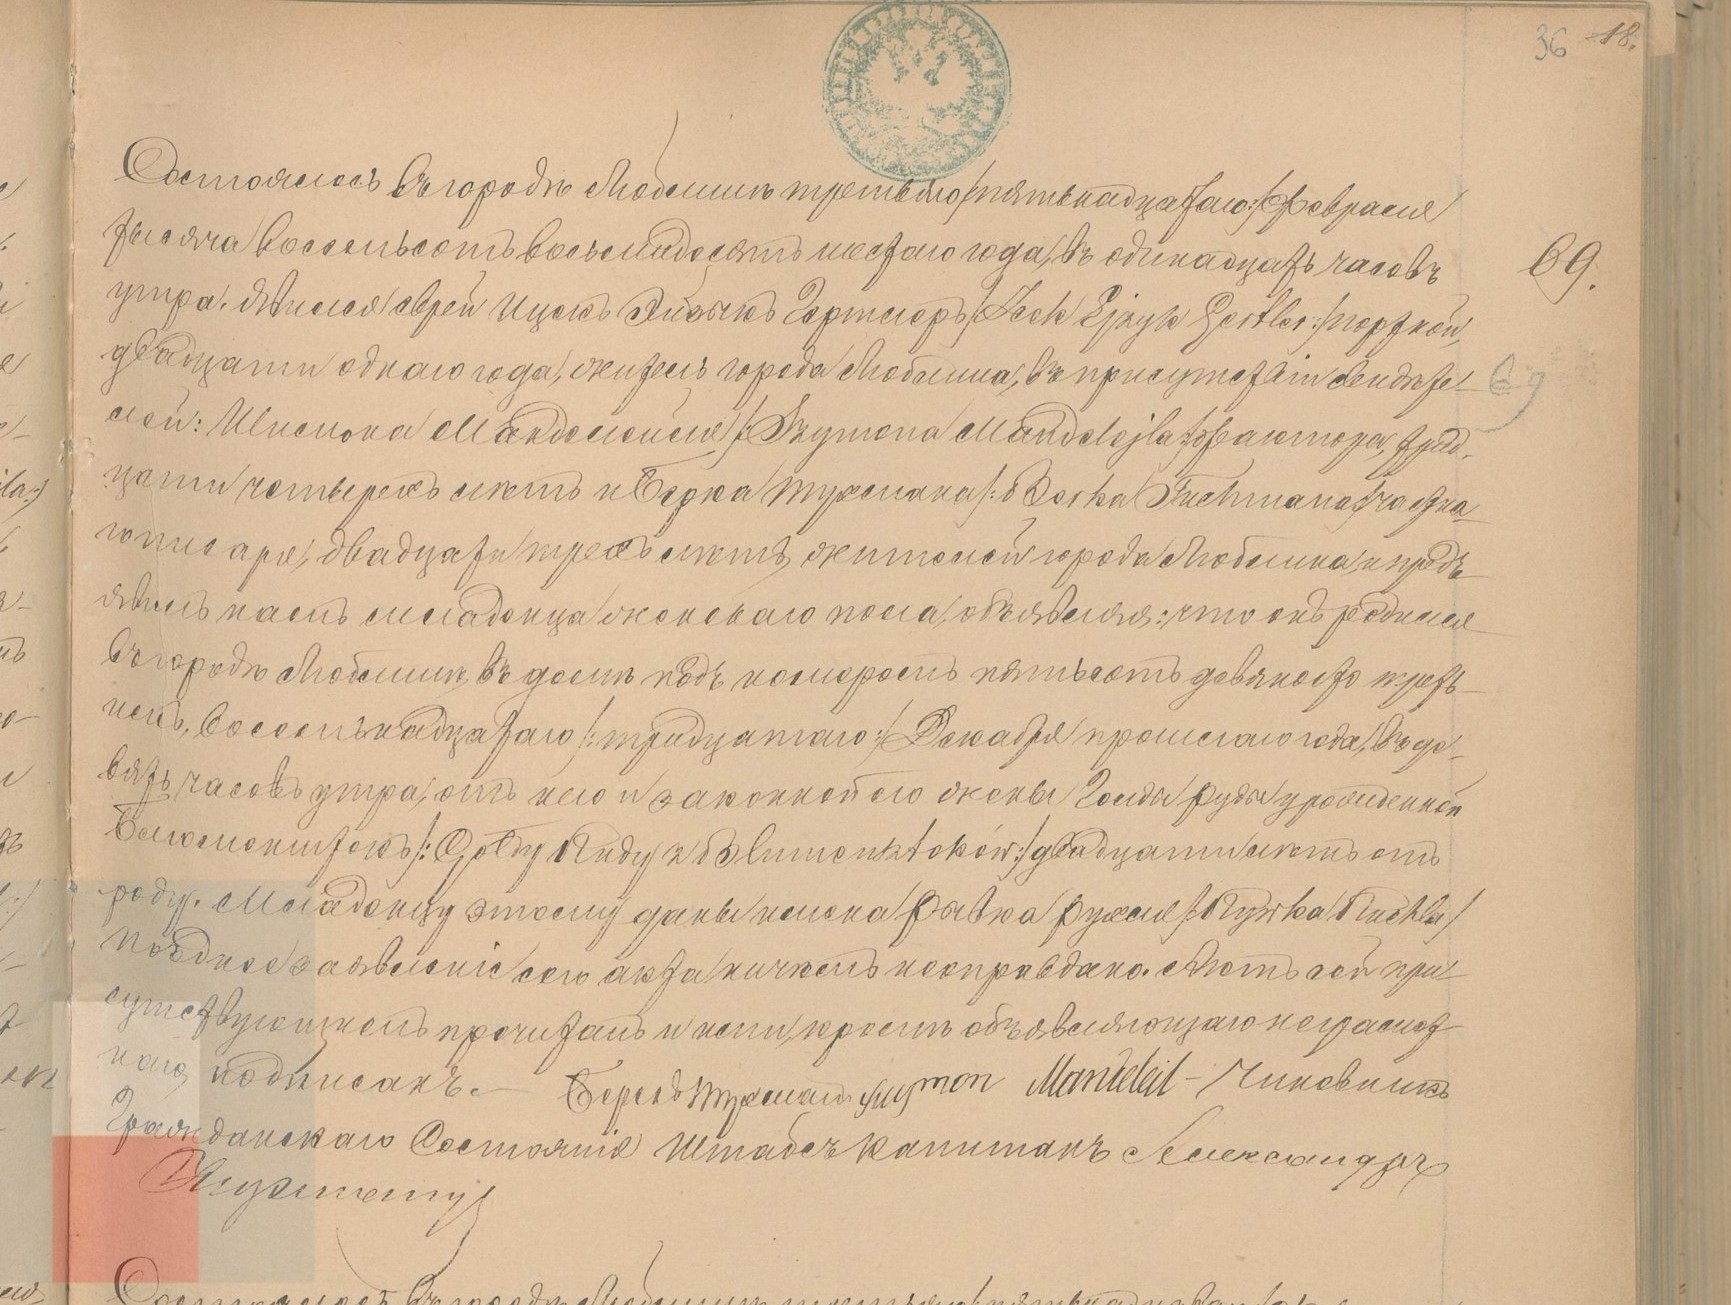 36 18.
Состоялось въ городѣ Люблинѣ третьяго /пятьнадцатаго:/ Февраля
тысяча восемьсотъ восемьдесятъ шестаго года, въ одинадцать часовъ
69.
утра. Явился еврей Ицекъ Эйзыкъ Гертлеръ /:Icek Ejzyk Gertler:/ портной,
двадцати однаго года, житель города Люблина, въ присутствіи свидѣте-
69
лей: Шимона Мандельейля /:Szymona Mandelejla:/ фактора, трид-
цати четырехъ лѣтъ и Берка Тухмана /:Berka Tuchmana:/ частна-
го писаря, двадцати трехъ лѣтъ, жителей города Люблина, и предъ-
явилъ намъ младенца женскаго пола, объявляя: что онъ родился
въ городѣ Люблинѣ, въ домѣ подъ номеромъ пятьсотъ девяносто треть-
имъ, восемьнадцатаго /:тридцатаго:/ Декабря прошлаго года, въ де-
вять часовъ утра, отъ него и законной его жены Голды Руды урожденной
двадцати лѣтъ отъ
роду. Младенцу этому даны имена Рывка Рухля /:Rywka Ruchla/
Позднее заявленіе сего акта ничѣмъ неоправдано. Актъ сей при-
сутствующимъ прочитанъ и ими, кромѣ объявляющаго неграмот-
наго, подписанъ.— Берекъ Тухманъ Szymon Mandeleil – Чиновникъ
Гражданскаго Состоянія Штабсъ Капитанъ Александръ
Состоялось въ городѣ Люблинѣ